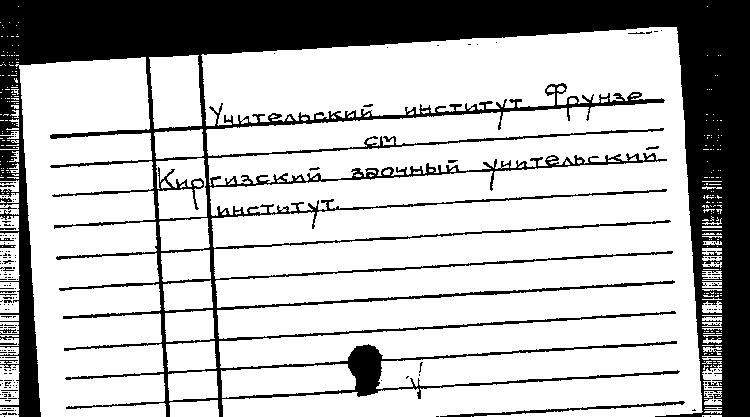 Учительский институт Фрунзе
см.
Киргизский заочный учительский
институт.